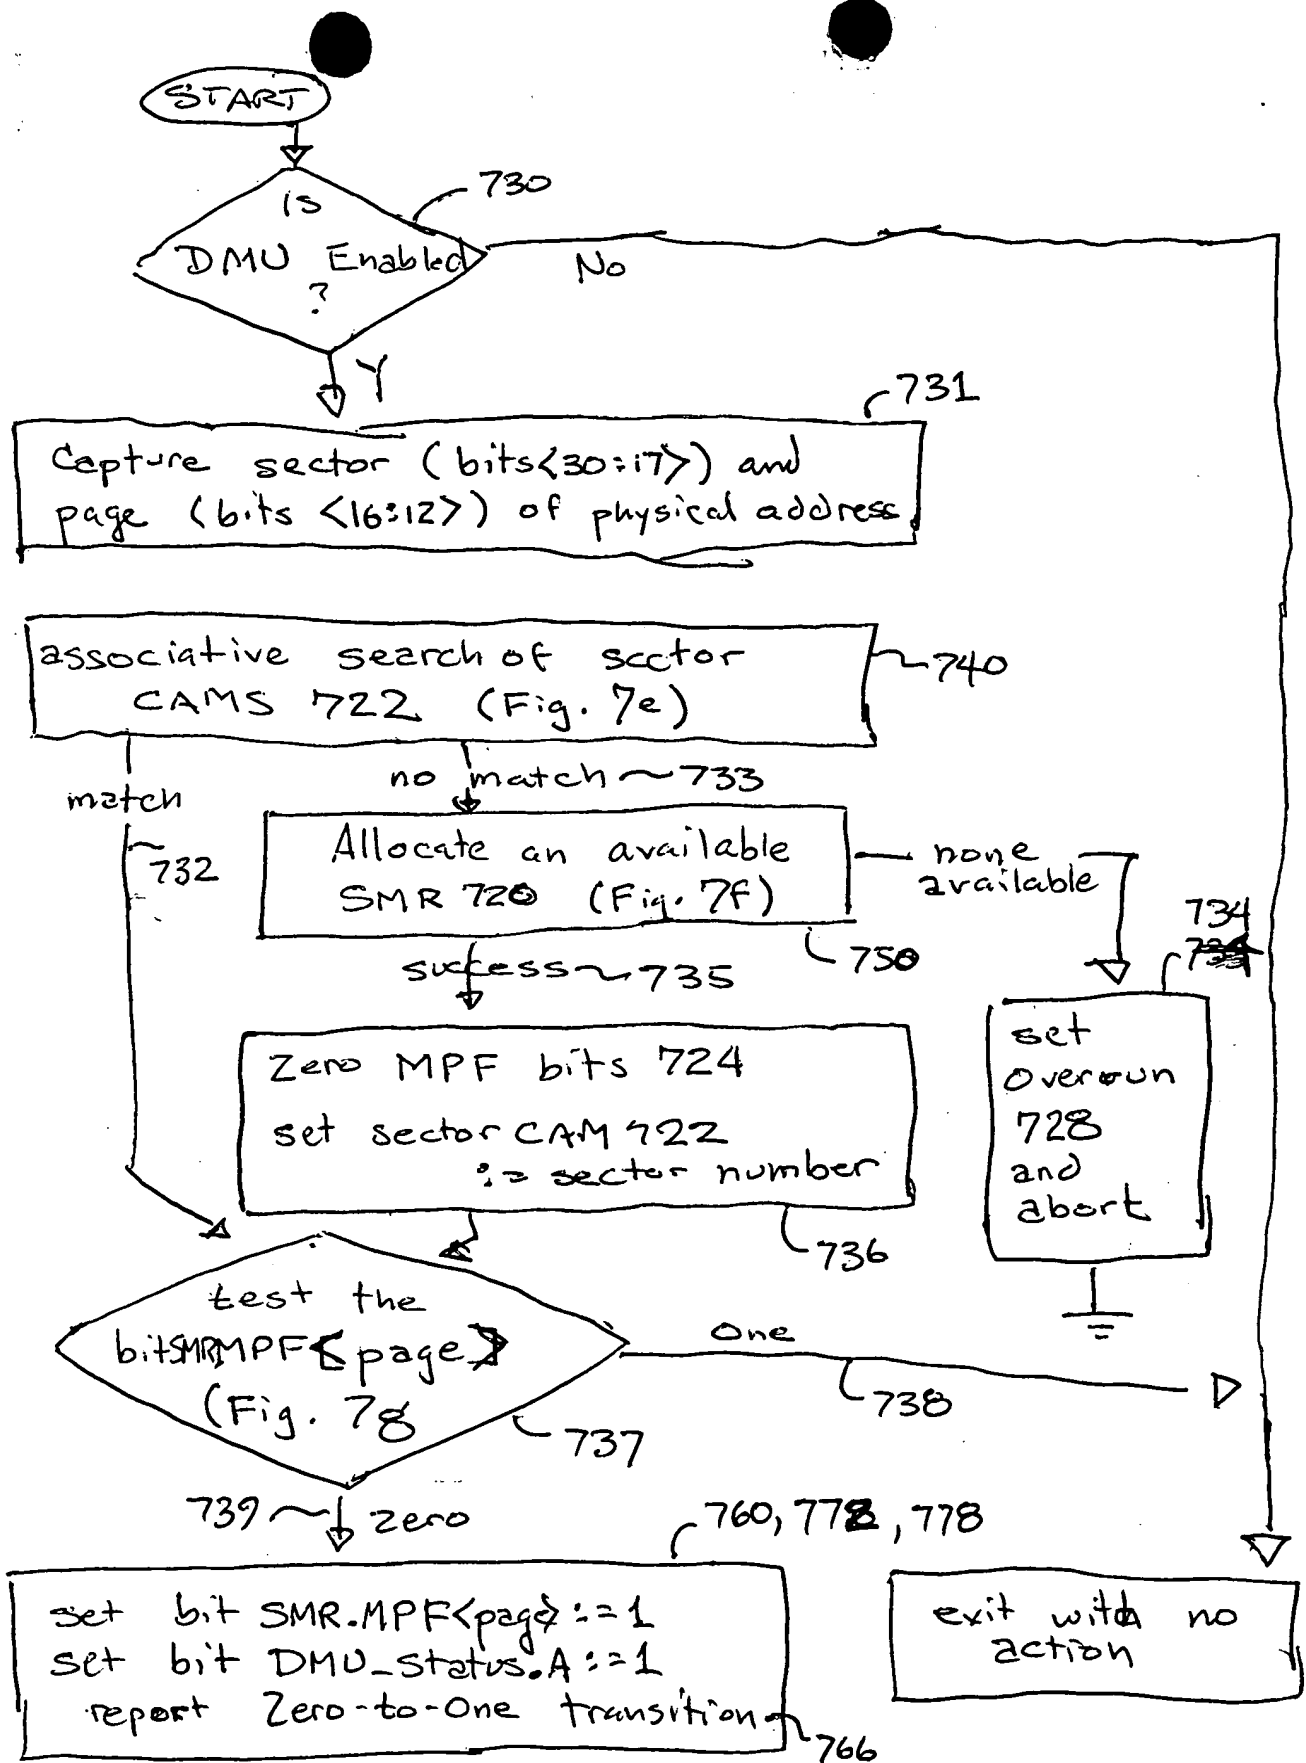 START
730
is
DMU Enabled
?
No
Y
731
Capture sector (bits<30:17>) and
page (bits <16:12>) of physical address
associative search of sector
CAMS 722 (Fig. 7e)
740
no match 733
match
732
Allocate an available
SMR 720 (Fig. 7f)
none
available
750
734
success 735
Zero MPF bits 724
set sector CAM 722
:= sector number
736
set
overrun
728
and
abort
test the
bit SMR MPF<page>
(Fig. 7g
737
One
738
739 zero
760, 772, 778
set bit SMR.MPF<page> :=1
set bit DMU_Status.A :=1
report Zero-to-One transition
766
exit with no
action